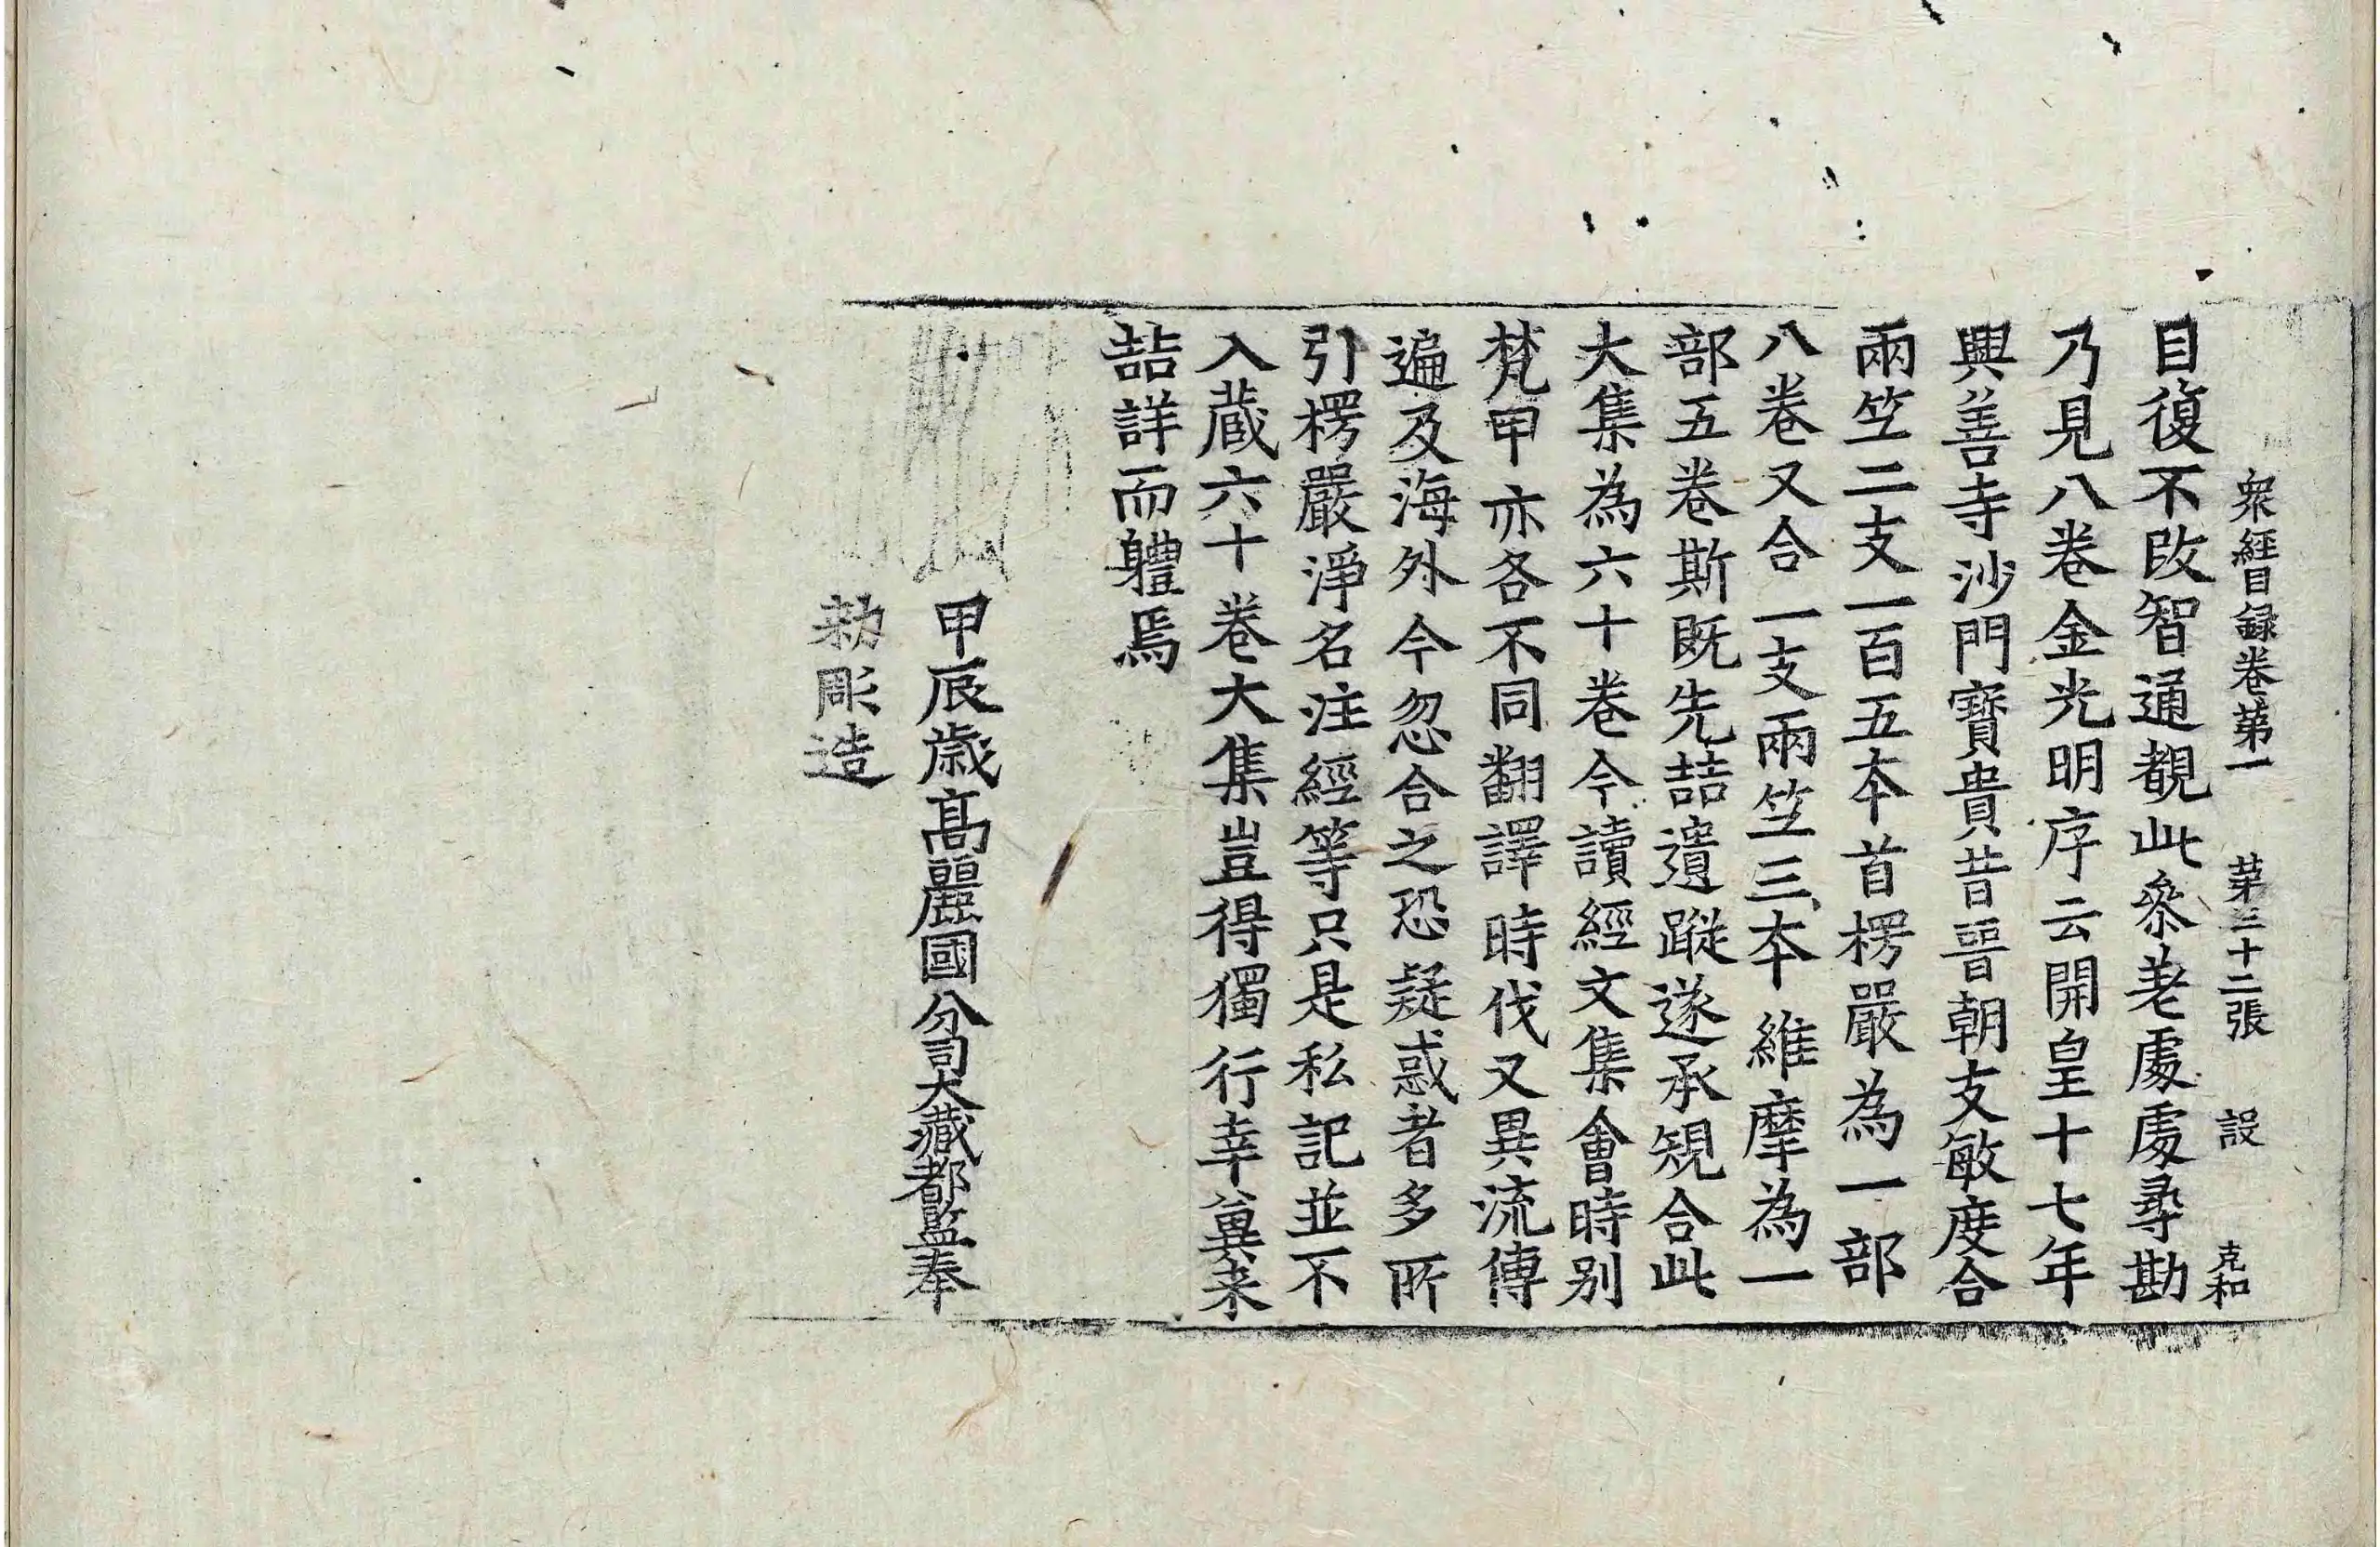 衆經目録卷第一 第三十二張 設 克和
目復不改智通覩此參差處處尋勘
乃見八卷金光明序云開皇十七年
興善寺沙門寶貴昔晉朝支敏度合
兩竺二支一百五本首楞嚴為一部
八卷又合一支兩竺三本維摩為一
部五卷斯既先喆遺蹤遂承規合此
大集為六十卷今讀經文集會時別
梵甲亦各不同翻譯時伐又異流傳
遍及海外今忽合之恐疑惑者多所
引楞嚴淨名注經等只是私記並不
入藏六十卷大集豈得獨行幸兾来
喆詳而軆焉
甲辰歲高麗國分司大藏都監奉
勅彫造